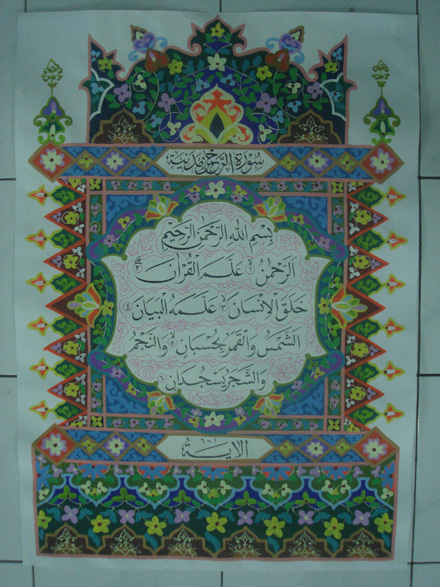 سورة الرحمن مدنية
بسم الله الرحمن الرحيم
الرحمن ۱ علم القرآن ۲
خلق الإنسان ۳ علمه البيان ٤
الشمس والقمر بحسبان ٥ والنجم
والشجر يسجدان ٦
الآية